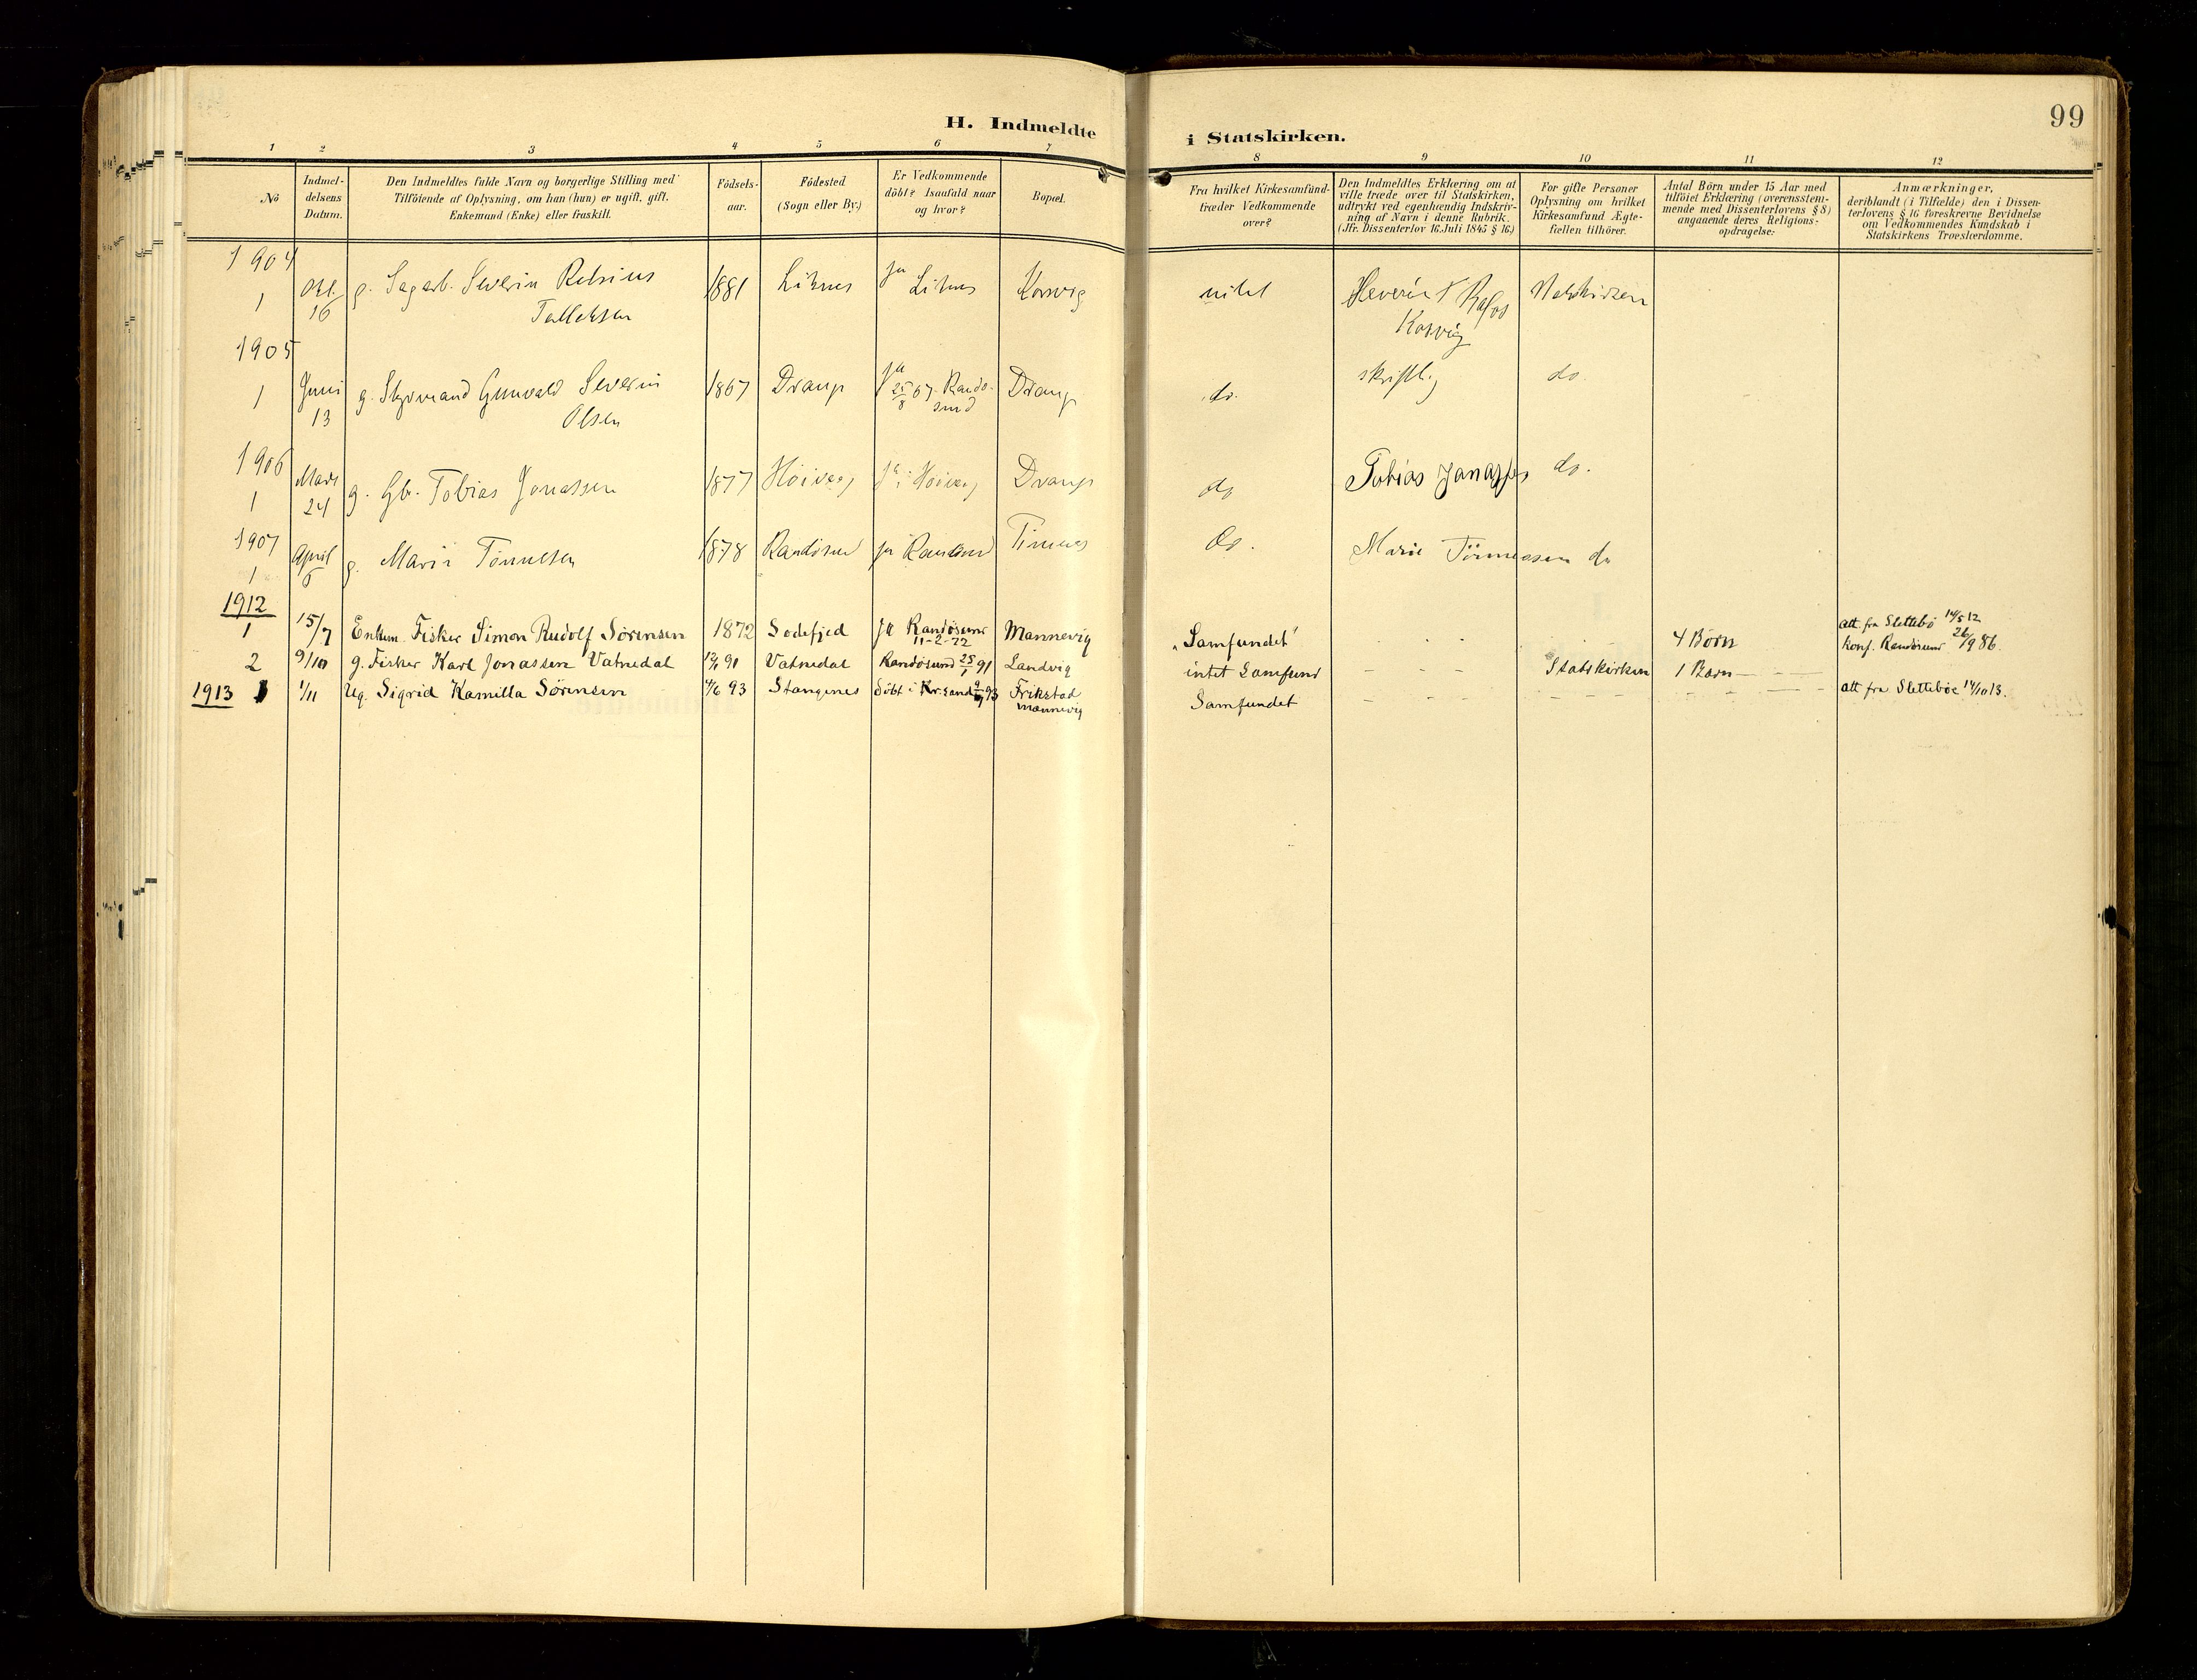 99
H. Indmeldte i Statskirken.
1 2 3 4 5 6 7 8 9 10 11 12
No
Indmel-
delsens
Datum.
Den Indmeldtes fulde Navn og borgerlige Stilling med
Tilföiende af Oplysning, om han (hun) er ugift, gift,
Enkemand (Enke) eller fraskilt.
Födsels-
aar.
Födested
(Sogn eller By.)
Er Vedkommende
döbt? Isaafald naar
og hvor?
Bopæl.
Fra hvilket Kirkesamfund
træder Vedkommende
over?
Den Indmeldtes Erklæring om at
ville træde over til Statskirken,
udtrykt ved egenhændig Indskriv-
ning af Navn i denne Rubrik.
(Jfr. Dissenterlov 16. Juli 1845 § 16.)
For gifte Personer
Oplysning om hvilket
Kirkesamfund Ægte-
fællen tilhörer.
Antal Börn under 15 Aar med
tilföiet Erklæring (overensstem-
mende med Dissenterlovens § 8)
angaaende deres Religions-
opdragelse:
Anmærkninger,
deriblandt (i Tilfælde) den i Dissen-
terlovens § 16 foreskrevne Bevidnelse
om Vedkommendes Kundskab i
Statskirkens Troeslærdomme.
1904
1 Okt. 16 g. Sagarb. Severin 1881 Liknes ja Liknes Korsvig intet
Korsvig
1905
1 Juni 13 g. Styrmand Gunvald Severin Olsen 1867 Drange ja 25/8 67 Randö-
sund Drange do. skriftlig do.
1906
1 Mars 24 g. Gb. Tobias Jonassen 1877 Höivaag ja i Höivaag Drange do Tobias Jonassen do.
1907
1 April 6 g. Marie Tönnesen 1878 Randösund ja Randösund Timenes do. Marie Tönnesen do
1912
1 15/7 Enkem. Fisker Simon Rudolf Sörensen 1872 Sodefjed ja Randösund 11-2-72 Mannevig "Samfundet" - - - 4 Börn att. fra Slettebö 14/5 12
konf. Randösund 26/9 86.
2 9/10 g. Fisker Karl Jonassen Vatnedal 91 Vatnedal Randösund 91 Landvig intet Samfund - - - Statskirken 1 Barn - - -
1913 1 1/11 Ug. Sigrid Kamilla Sörensen 4/6 93 Stangenes döbt i Kr.sand 93 Frikstad
Mannevig Samfundet - - - - - - - - - att fra Sletteböe 14/10 13.